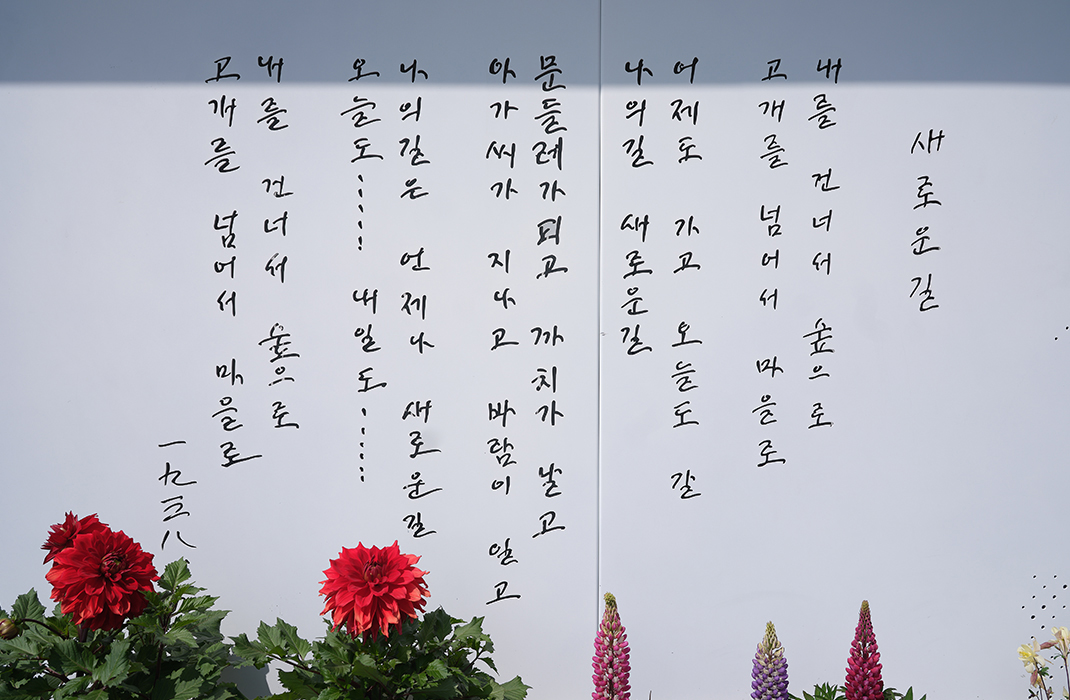 새로운길
내를 건너서 숲으로
고개를 넘어서 마을로
어제도 가고 오늘도 갈
나의길 새로운길
문들레가피고 까치가 날고
아가씨가 지나고 바람이 일고
나의길은 언제나 새로운길
오늘도…… 내일도……
내를 건너서 숲으로
고개를 넘어서 마을로
一九三八